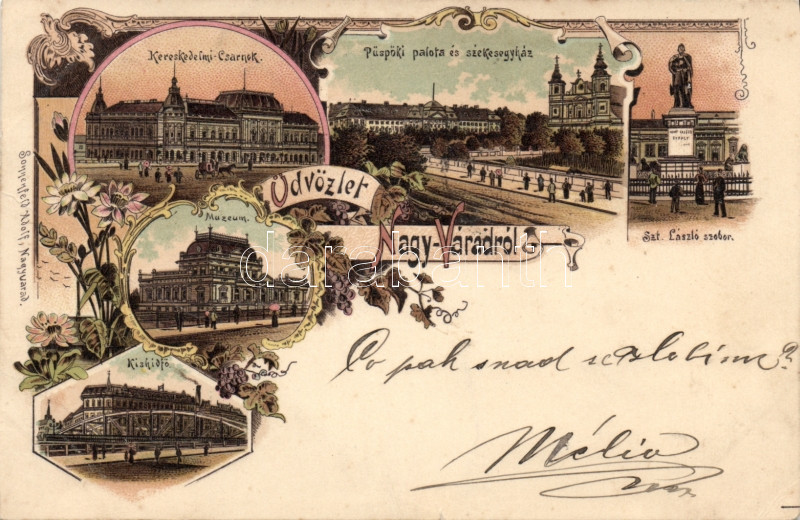 Kereskedelmi-Csarnok.
Püspöki palota és székesegyház
Szt. László szobor.
Üdvözlet
Nagy-Váradról
Muzeum.
Kishidfő
Sonnenfeld Adolf, Nagyvárad.
darabanth.com
Co pak snad